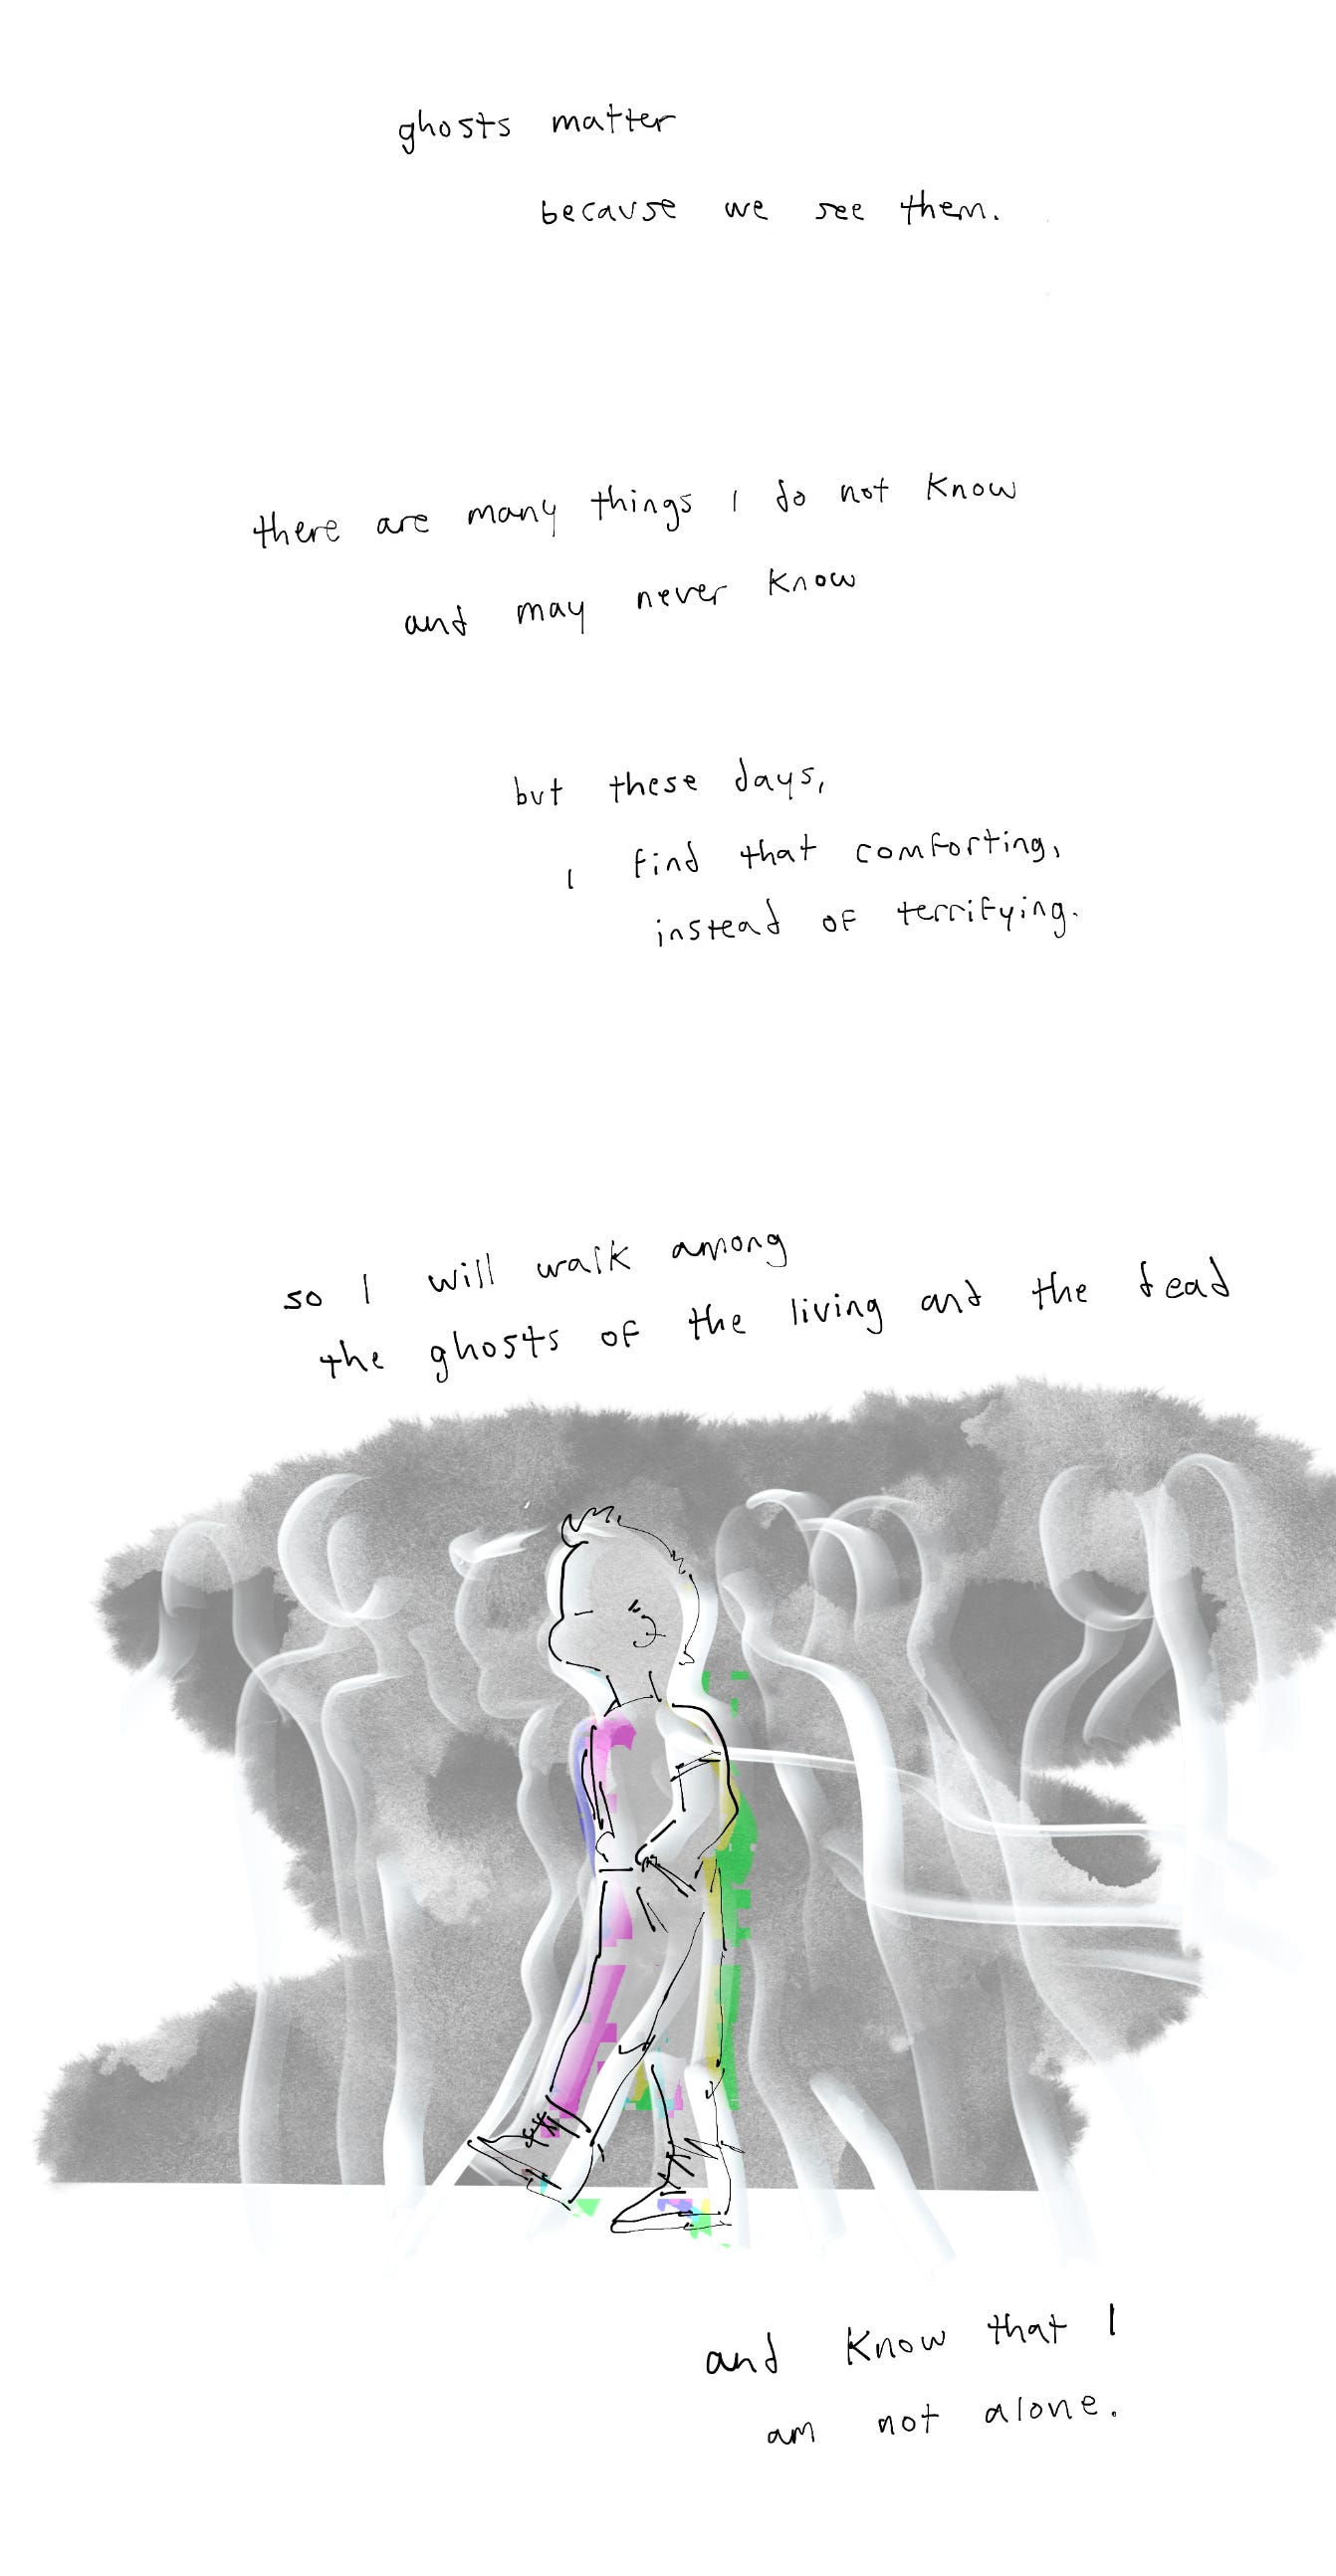 ghosts matter
because we see them.
there are many things I do not know
and may never know
but these days,
I find that comforting,
instead of terrifying.
so I will walk among
the ghosts of the living and the dead
and know that I
am not alone.